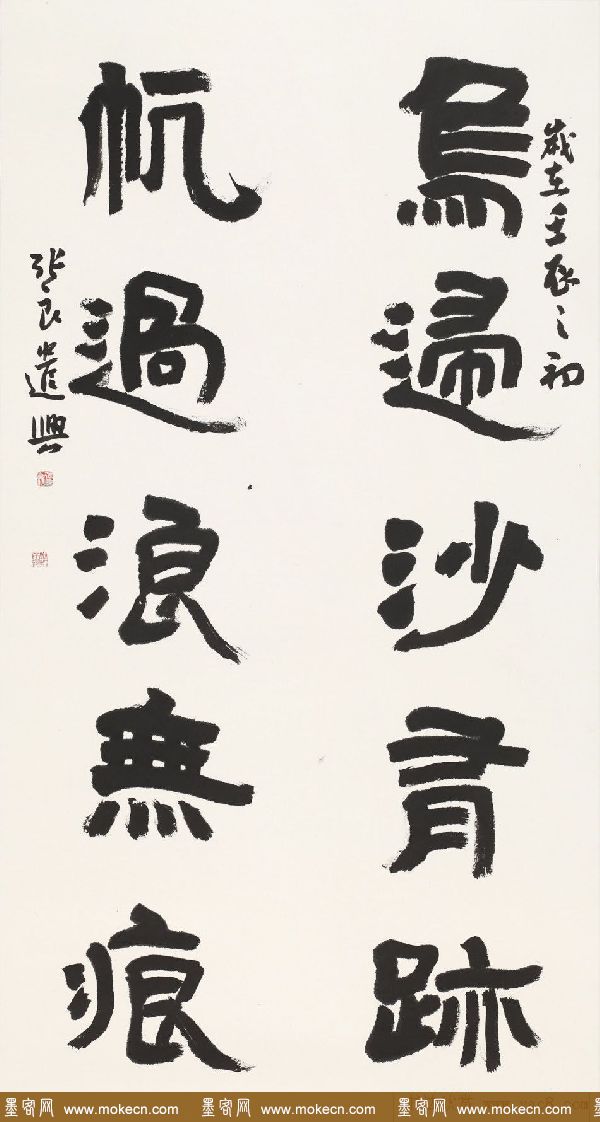 歲在壬辰之初
鳥歸沙有跡
帆過浪無痕
張良遣興
墨客网 www.mokecn.com 墨客网 www.mokecn.com 墨客网 www.mokecn.com